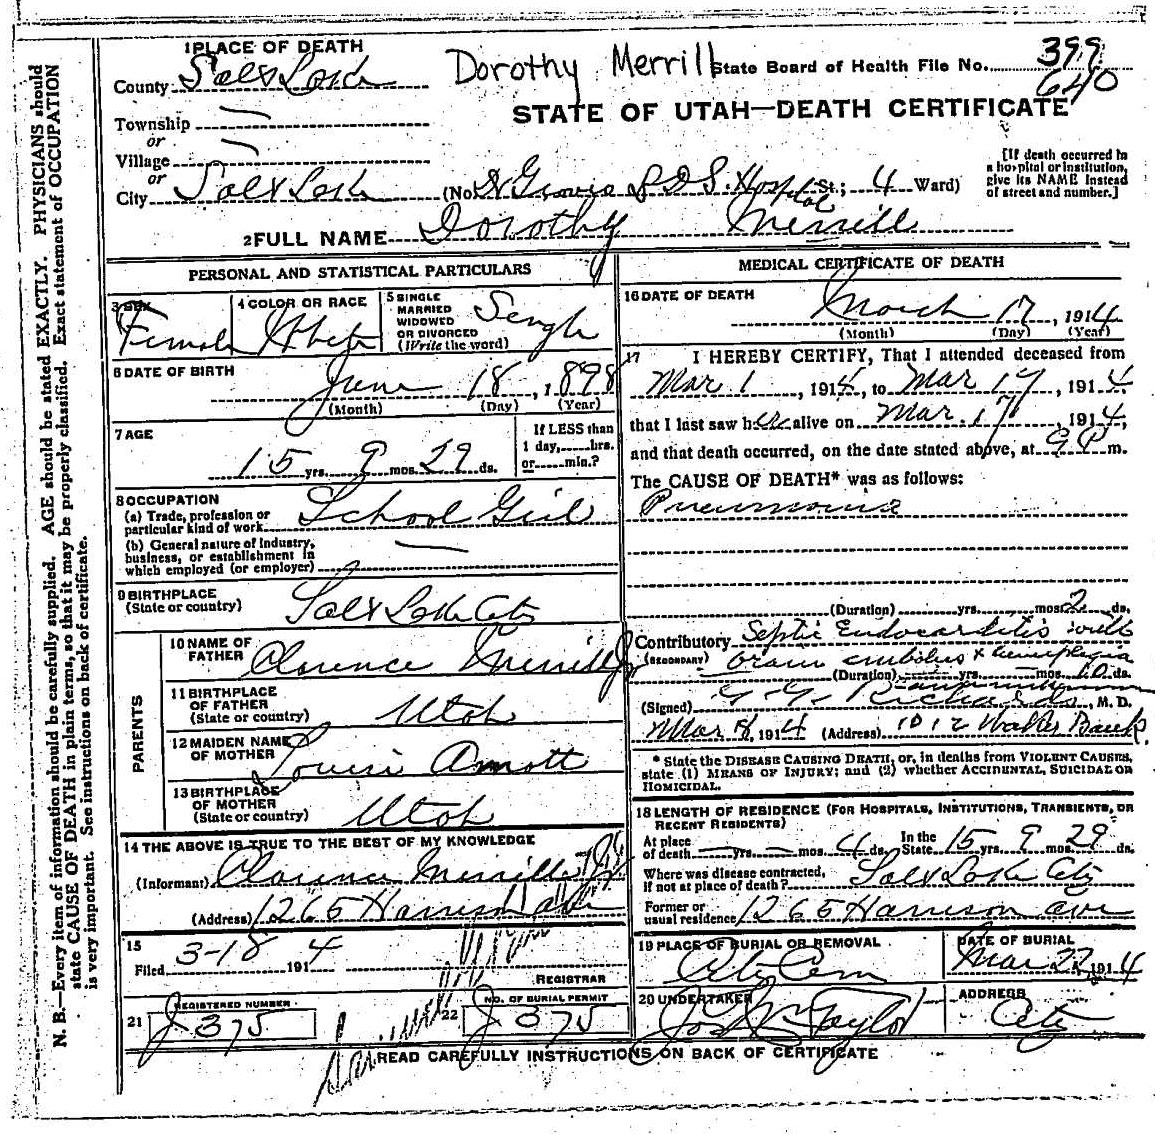 N. B.—Every item of information should be carefully supplied. AGE should be stated EXACTLY. PHYSICIANS should
state CAUSE OF DEATH in plain terms, so that it may be properly classified. Exact statement of OCCUPATION
is very important. See instructions on back of certificate.
Dorothy Merrill
State Board of Health File No. 399
640
STATE OF UTAH—DEATH CERTIFICATE
1 PLACE OF DEATH
County Salt Lake
Township —
or
Village —
or
City Salt Lake (No. L D S. Hospital St.; 4 Ward)
[If death occurred in
a hospital or institution,
give its NAME instead
of street and number.]
2 FULL NAME Dorothy Merrill
PERSONAL AND STATISTICAL PARTICULARS
3 SEX Female
4 COLOR OR RACE White
5 SINGLE
MARRIED
WIDOWED
OR DIVORCED
(Write the word) Single
6 DATE OF BIRTH June 18, 1898
(Month) (Day) (Year)
7 AGE 15 yrs. 9 mos. 29 ds.
If LESS than
1 day,.....hrs.
or.....min.?
8 OCCUPATION
(a) Trade, profession or
particular kind of work School Girl
(b) General nature of industry,
business, or establishment in
which employed (or employer) —
9 BIRTHPLACE
(State or country) Salt Lake City
PARENTS
10 NAME OF
FATHER Clarence Merrill Jr
11 BIRTHPLACE
OF FATHER
(State or country) Utah
12 MAIDEN NAME
OF MOTHER Louise Arnott
13 BIRTHPLACE
OF MOTHER
(State or country) Utah
14 THE ABOVE IS TRUE TO THE BEST OF MY KNOWLEDGE
(Informant) Clarence Merrill Jr
(Address) 1265 Harrison ave
15
Filed 3-18 1914
REGISTRAR
21 REGISTERED NUMBER
J 375
22 NO. OF BURIAL PERMIT
J 375
MEDICAL CERTIFICATE OF DEATH
16 DATE OF DEATH
March 17, 1914
(Month) (Day) (Year)
17 I HEREBY CERTIFY, That I attended deceased from
Mar 1, 1914, to Mar 17, 1914
that I last saw her alive on Mar. 17, 1914,
and that death occurred, on the date stated above, at 9 P m.
The CAUSE OF DEATH* was as follows:
Pneumonia
(Duration) yrs. mos. 2 ds.
Contributory Septic Endocarditis with
(SECONDARY) brain embolus & hemiplegia
(Duration) yrs. — mos. 10 ds.
(Signed) G. G. Richards, M. D.
Mar 18, 1914 (Address) 1012 Walker Bank
* State the DISEASE CAUSING DEATH, or, in deaths from VIOLENT CAUSES,
state (1) MEANS OF INJURY; and (2) whether ACCIDENTAL, SUICIDAL OR
HOMICIDAL.
18 LENGTH OF RESIDENCE (FOR HOSPITALS, INSTITUTIONS, TRANSIENTS, OR
RECENT RESIDENTS)
At place
of death — yrs. — mos. 4 ds. In the
State 15 yrs. 9 mos. 29 ds.
Where was disease contracted,
if not at place of death? Salt Lake City
Former or
usual residence 1265 Harrison ave
19 PLACE OF BURIAL OR REMOVAL
City Cem
DATE OF BURIAL
Mar 22, 1914
20 UNDERTAKER
Jos Wm Taylor
ADDRESS
City
READ CAREFULLY INSTRUCTIONS ON BACK OF CERTIFICATE